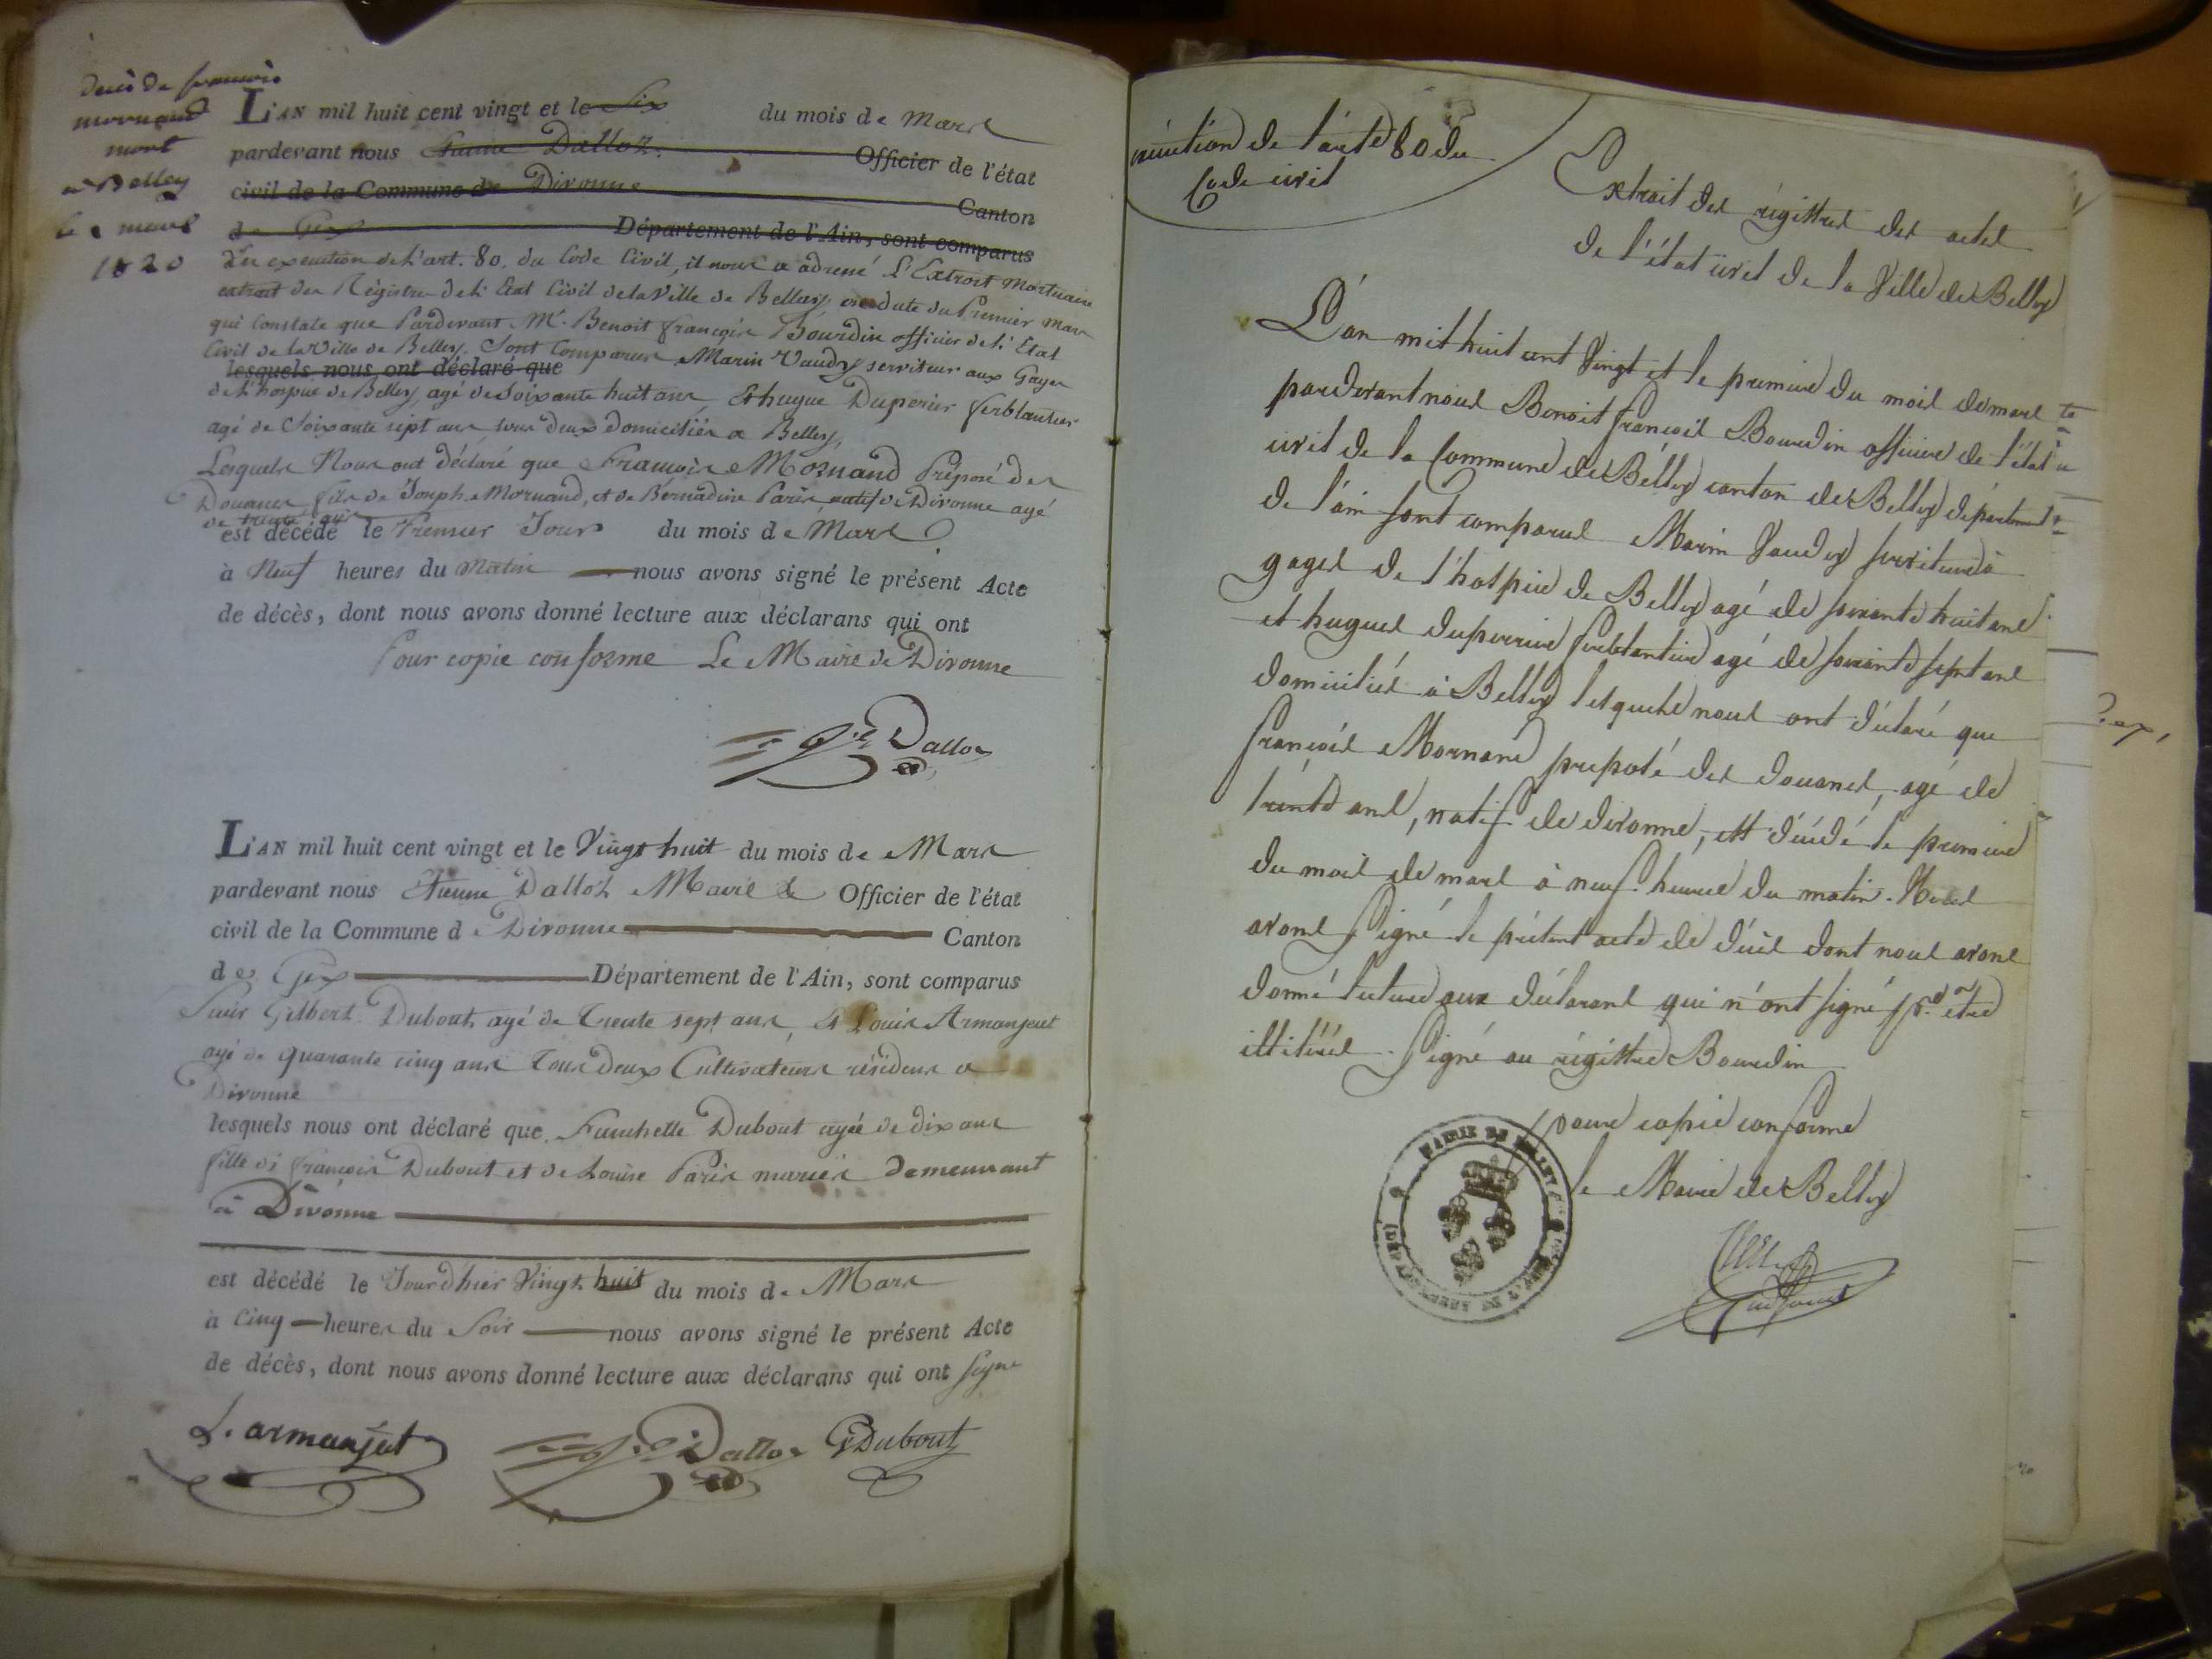 decès de françois
mornand
mort
à Belley
le 1 mars
1820
L'AN mil huit cent vingt et le Six du mois de Mars
pardevant nous Etienne Dalloz Officier de l'état
civil de la Commune de Divonne Canton
de Gex Département de l'Ain, sont comparus
En execution de L'art. 80. du Code Civil, il nous a adressé L'Extrait Mortuaire
extrait des Régistres de L'Etat Civil de la Ville de Belley, en date du Premier Mars
qui Constate que Pardevant Mr. Benoit françois Bourdin officier de L'Etat
Civil de la Ville de Belley. Sont Comparus Marin Vaudey serviteur aux Gages
lesquels nous ont déclaré que
de L'hospice de Belley, agé de Soixante huit ans, Et hugue Duperier ferblantier
agé de Soixante sept ans tous deux domiciliés a Belley,
Lesquels Nous ont déclaré que François Mornand Préposé des
Douanes, fils de Joseph Mornand, et de Bernadine Paris, natif de Divonne agé
de trente ans
est décédé le Premier Jour du mois de Mars
à Neuf heures du Matin nous avons signé le présent Acte
de décès, dont nous avons donné lecture aux déclarans qui ont
Pour copie conforme Le Maire de Divonne
Dalloz
L'AN mil huit cent vingt et le Vingt huit du mois de Mars
pardevant nous Etienne Dalloz Maire & Officier de l'état
civil de la Commune de Divonne Canton
de Gex Département de l'Ain, sont comparus
Sieur Gilbert Dubout, agé de Trente sept ans, Et Louis Armanjeut
agé de quarante cinq ans Tous deux Cultivateurs résidens a
Divonne
lesquels nous ont déclaré que Fanchette Dubout agée de dix ans
fille de françois Dubout et de Louise Paris mariés demeurant
à Divonne
est décédé le Jourdhier Vingt huit du mois de Mars
à Cinq heures du Soir nous avons signé le présent Acte
de décès, dont nous avons donné lecture aux déclarans qui ont signé
L. armanjeut Dalloz G Dubout
de l'arte 80 du
Code civil
Extrait des régistres des actes
de l'état civil de la Ville de Belley
L'an mil huit cent Vingt et le premier du mois de mars
pardevant nous Benoit françois Bourdin officier de l'état
civil de la Commune de Belley canton de Belley département
de l'ain sont comparus Marin Vaudey serviteur à
gages de l'hospice de Belley agé de soixante huit ans
et hugues duperrier ferblantier agé de soixante sept ans
domiciliés à Belley lesquels nous ont déclaré que
françois Mornand preposé des douanes, agé de
trente ans, natif de divonne, est décédé le premier
du mois de mars à neuf heures du matin. Nous
avons signé le présent acte de décès dont nous avons
donné lecture aux déclarans qui n'ont signé pr. être
illitérés. Signé au régistre Bourdin
pour copie conforme
le Maire de Belley
MAIRIE DE BELLEY